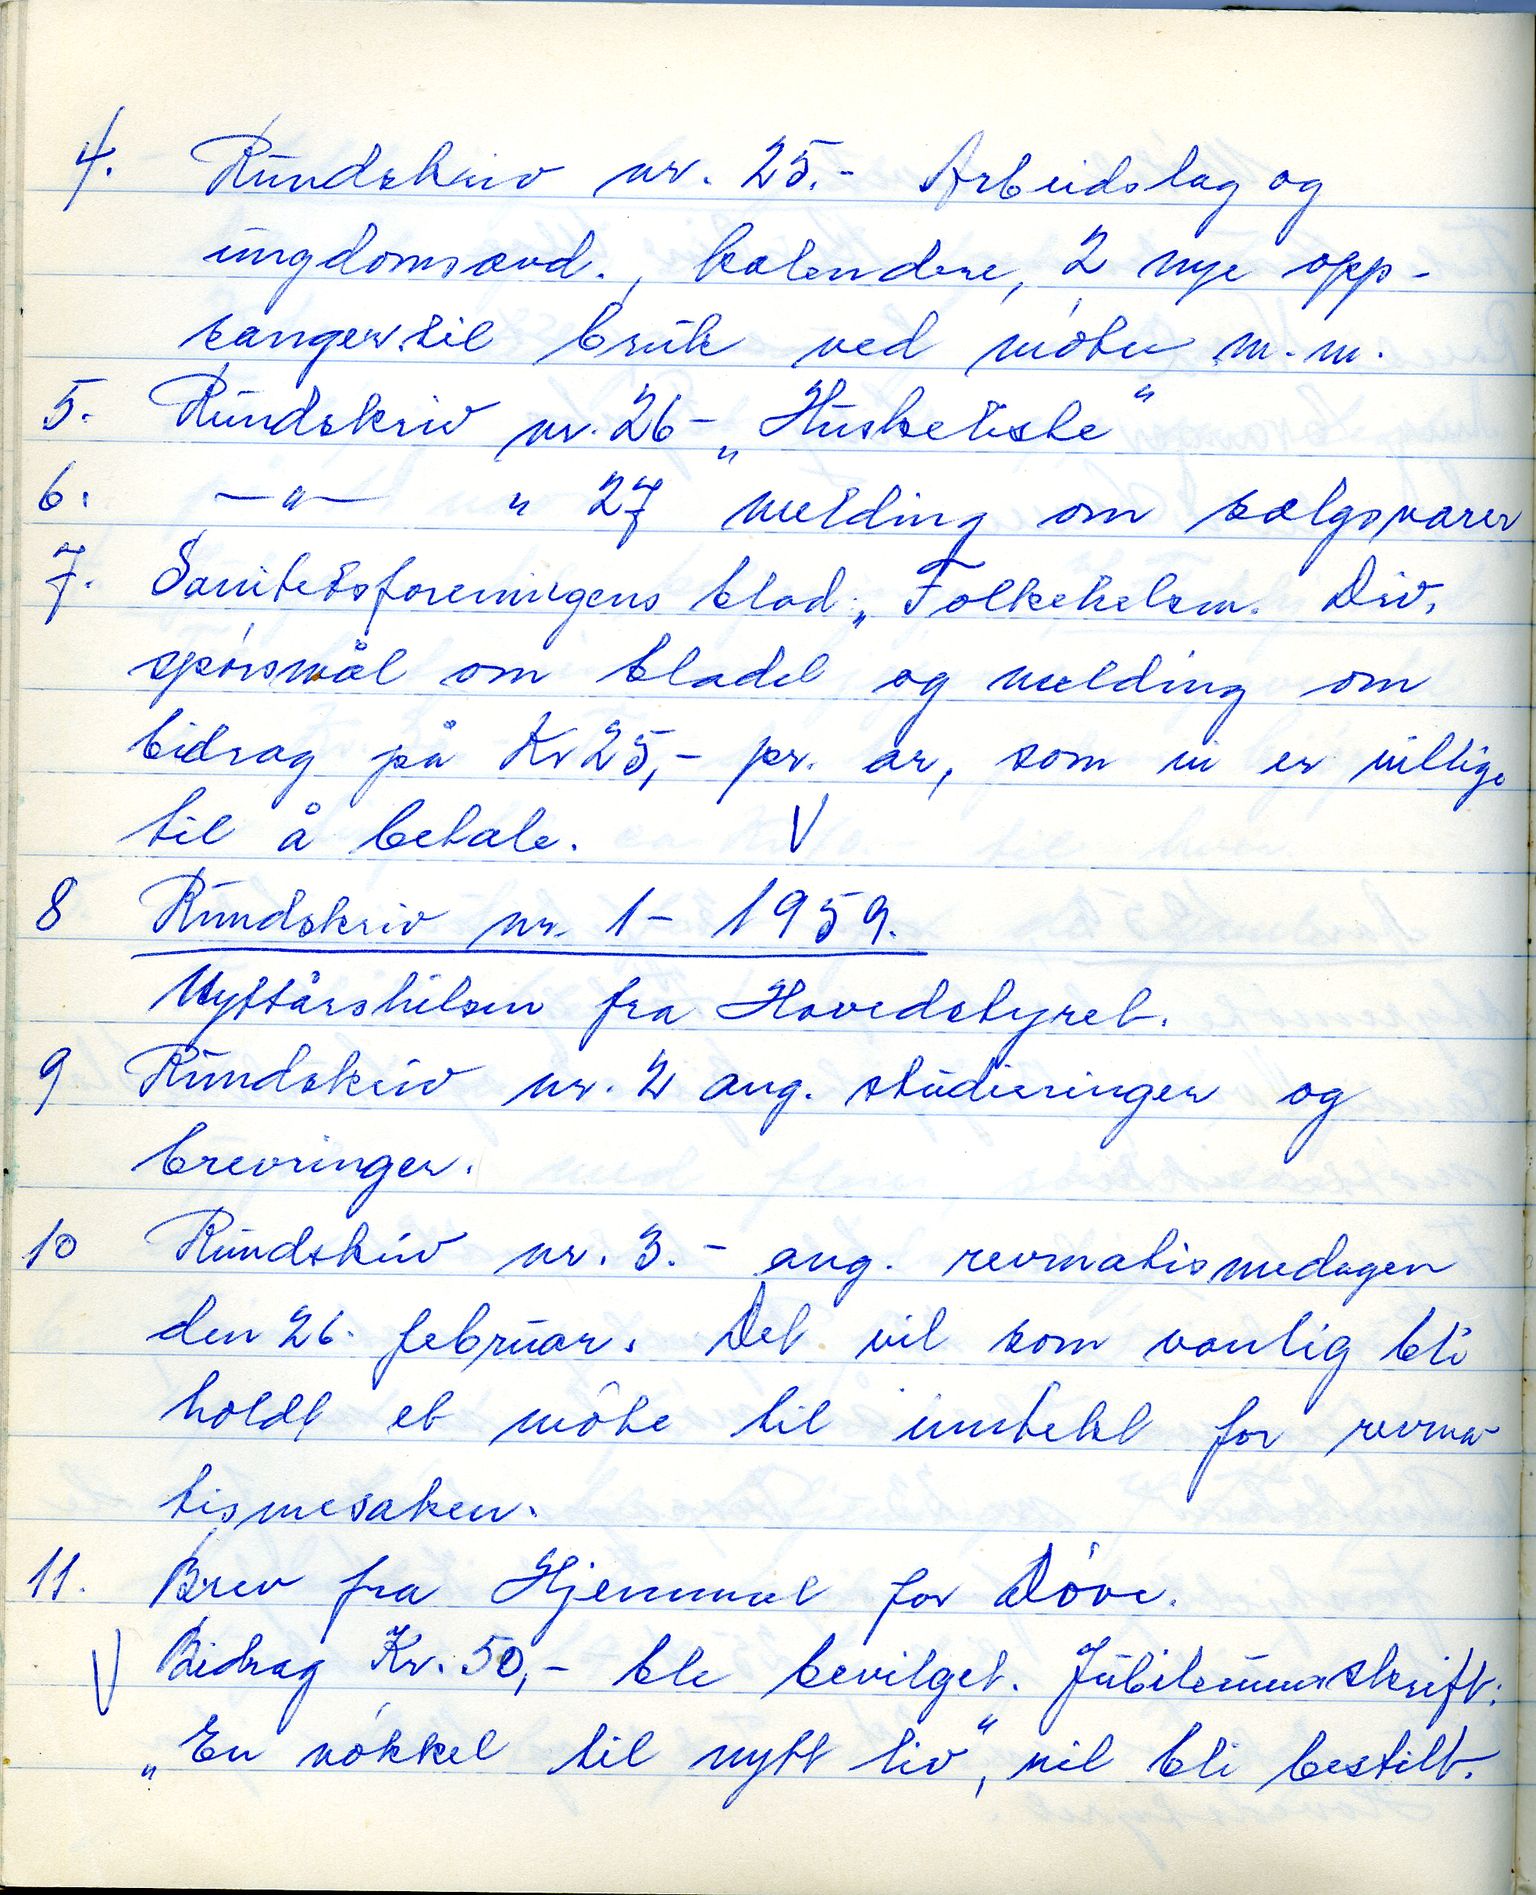 4. Rundskriv nr. 25.- Arbeidslag og
ungdomsavd., kalendere, 2 nye opp-
sanger til bruk ved møter m.m.
5. Rundskriv nr. 26 - „Huskeliste"
6. —"— " 27 melding om salgsvarer
7. Sanitetsforeningens blad „Folkehelsen. Div.
spørsmål om bladet og melding om
bidrag på Kr 25,- pr. år, som vi er villige
til å betale. V
8 Rundskriv nr. 1 - 1959.
Nyttårshilsen fra Hovedstyret.
9 Rundskriv nr. 2 ang. studieringer og
brevringer.
10 Rundskriv nr. 3. - ang. revmatismedagen
den 26. februar. Det vil som vanlig bli
holdt et møte til inntekt for revma-
tismesaken.
11. Brev fra Hjemmet for Døve.
V Bidrag Kr. 50,- ble bevilget. Jubileumsskrift:
„En nøkkel til nytt liv", vil bli bestilt.